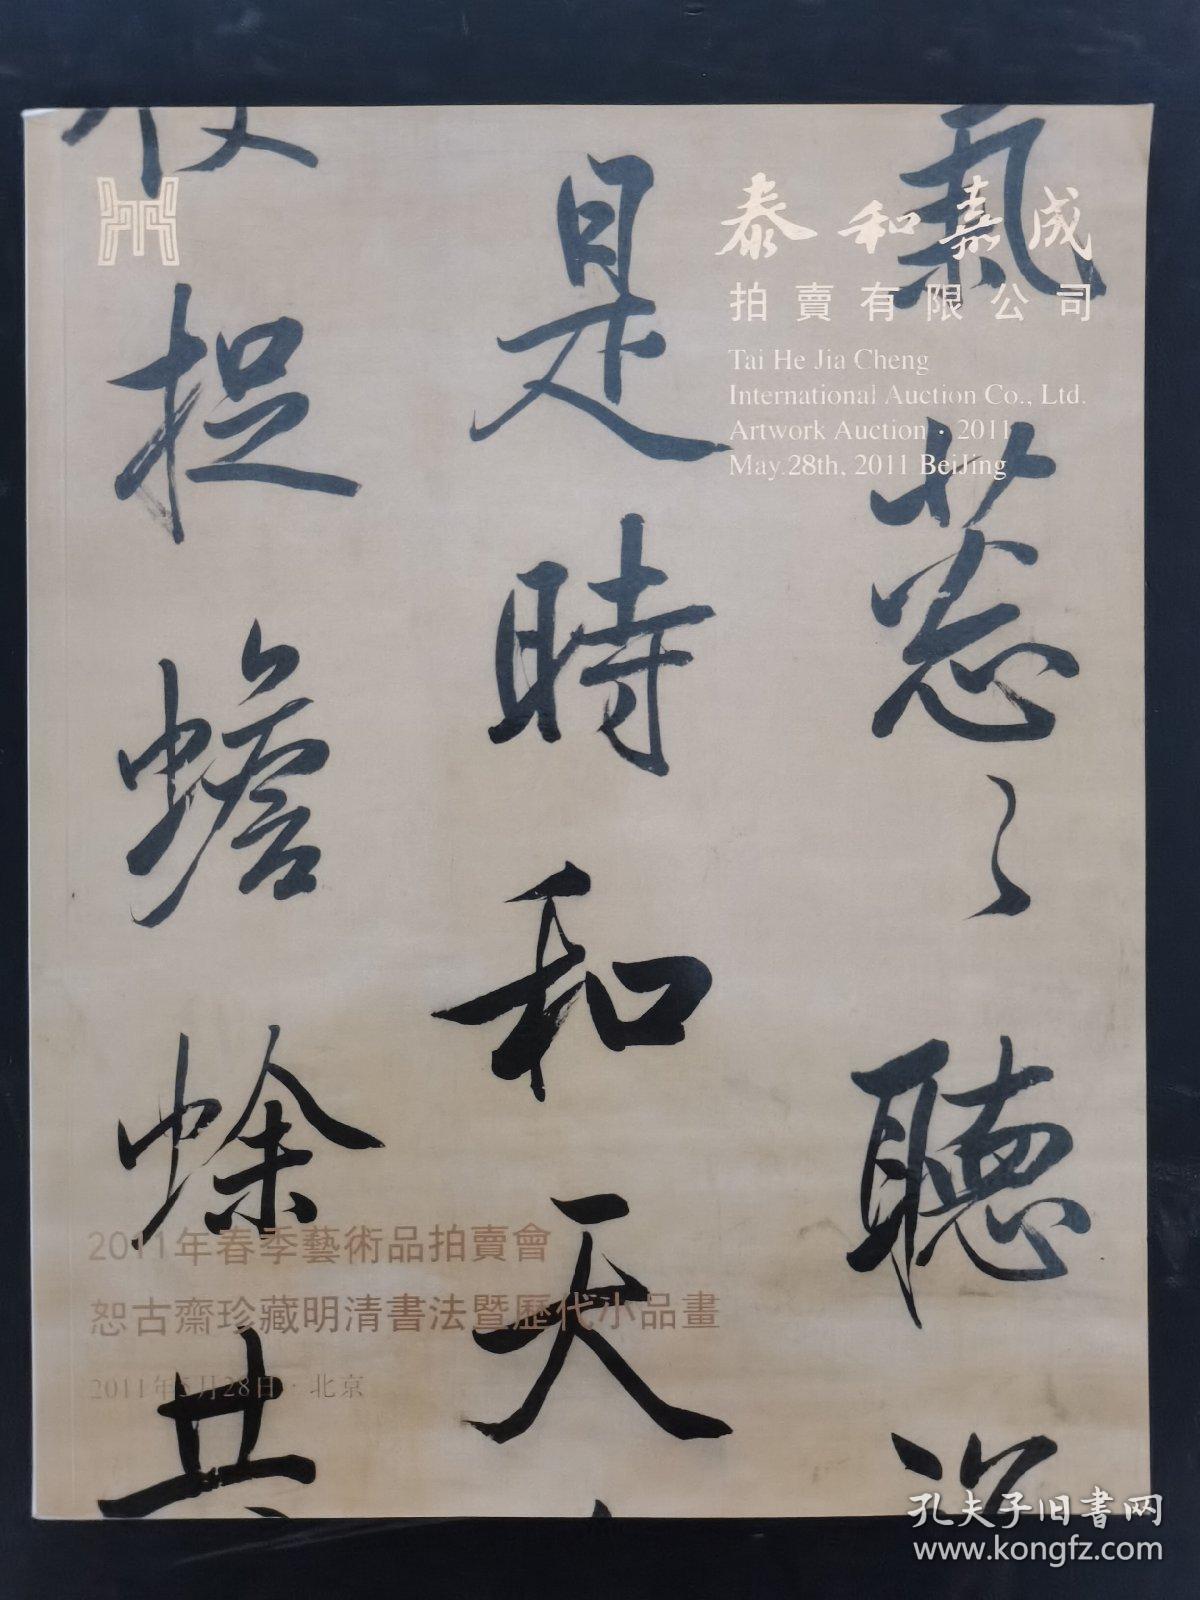 泰和嘉成
拍賣有限公司
Tai He Jia Cheng
International Auction Co., Ltd.
Artwork Auction · 2011
May.28th, 2011 BeiJing
氣蔥〻聽
是時和天
捉蟾蜍其
2011年春季藝術品拍賣會
恕古齋珍藏明清書法暨歷代小品畫
2011年5月28日·北京
孔夫子旧书网
www.kongfz.com